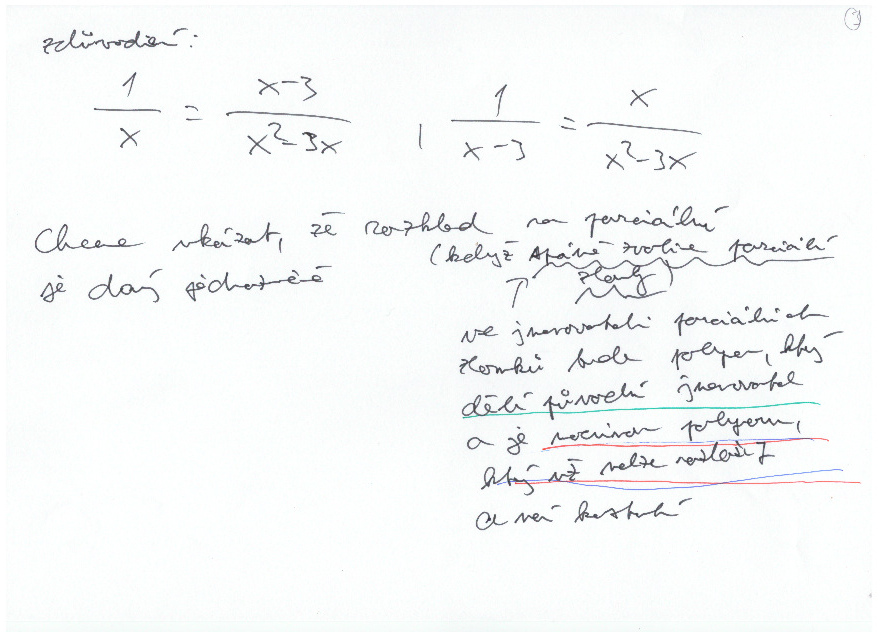 zdůvodnění:
1/x = (x-3)/(x²-3x) , 1/(x-3) = x/(x²-3x)
Chceme ukázat, že rozklad na parciální
(když správně zvolíme parciální
zlomky)
je daný jednoznačně
ve jmenovateli parciálních
zlomků bude polynom, který
dělí původní jmenovatel
a je mocninou polynomu,
který už nelze rozložit
a není konstantní